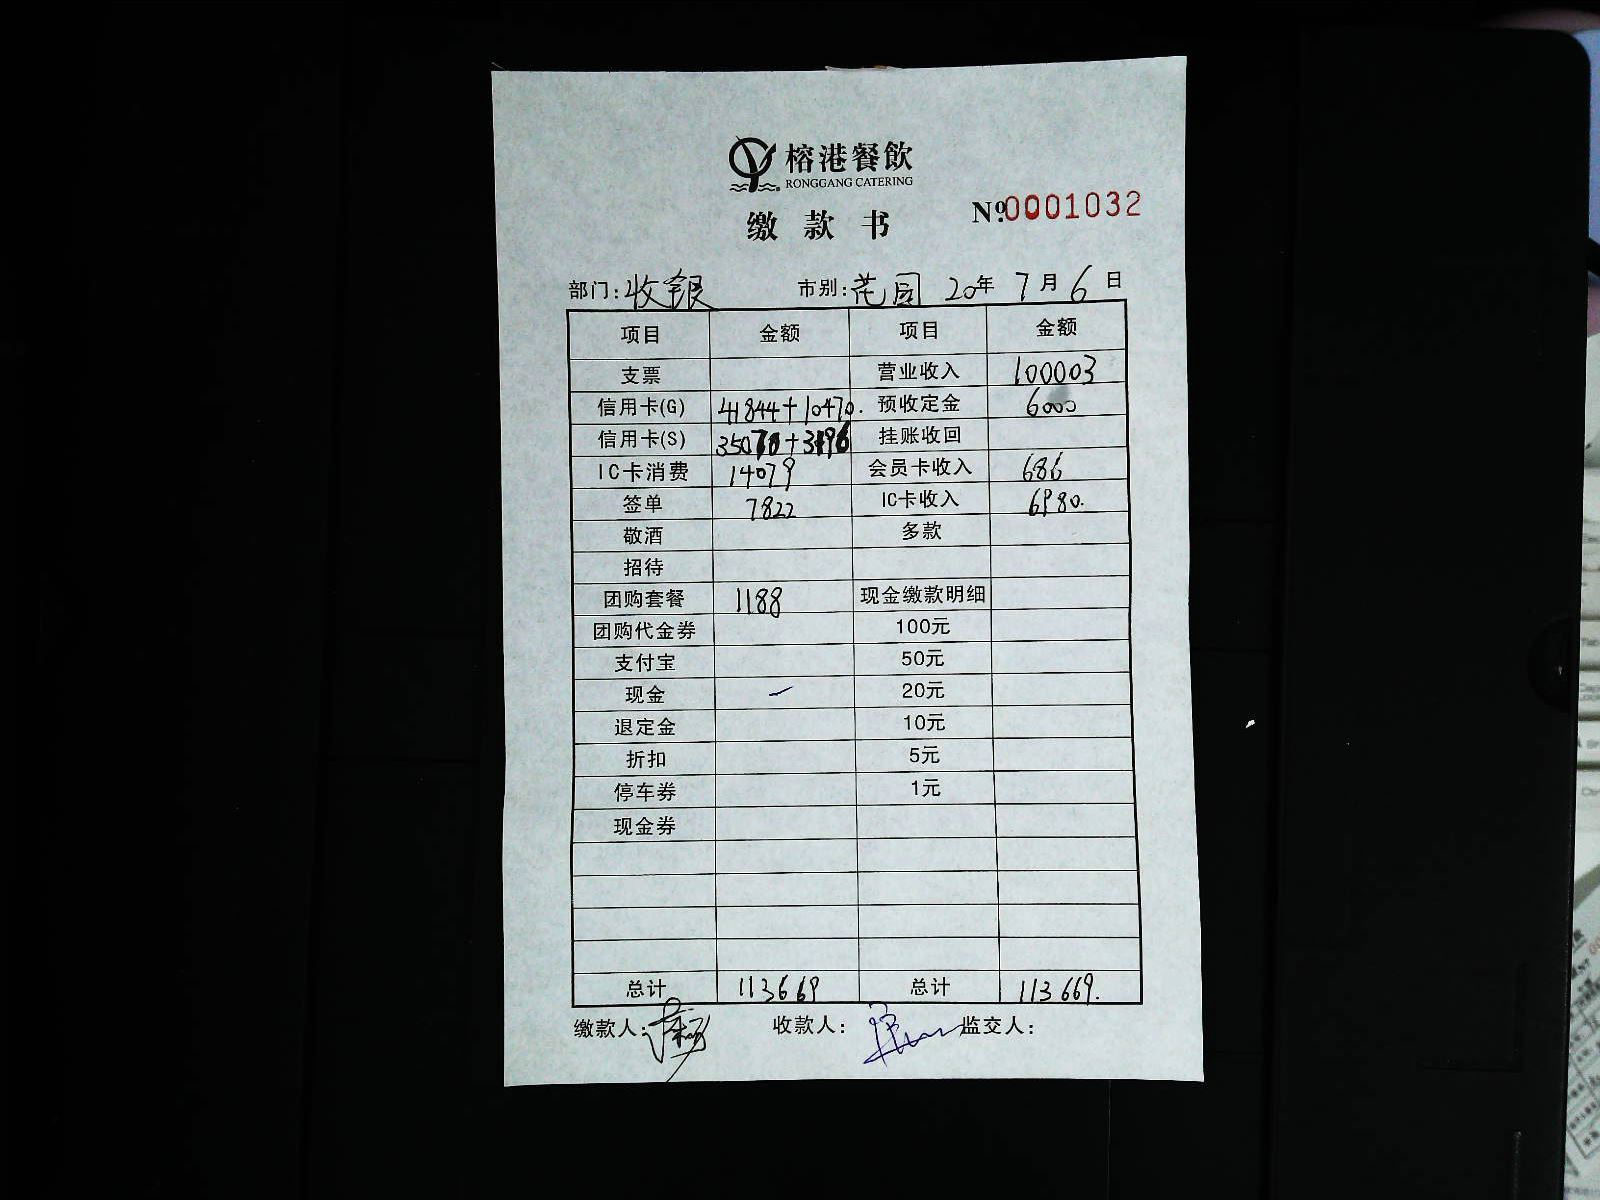 榕港餐飲
RONGGANG CATERING
缴款书 №0001032
部门:收银 市别:花园 20年7月6日
项目 金额 项目 金额
支票 营业收入 100003
信用卡(G) 41844+10470. 预收定金 6000
信用卡(S) 35070+3196 挂账收回
IC卡消费 14079 会员卡收入 686
签单 7822 IC卡收入 6980.
敬酒 多款
招待
团购套餐 1188 现金缴款明细
团购代金券 100元
支付宝 50元
现金 — 20元
退定金 10元
折扣 5元
停车券 1元
现金券
总计 113669 总计 113669.
缴款人: 收款人: 监交人: